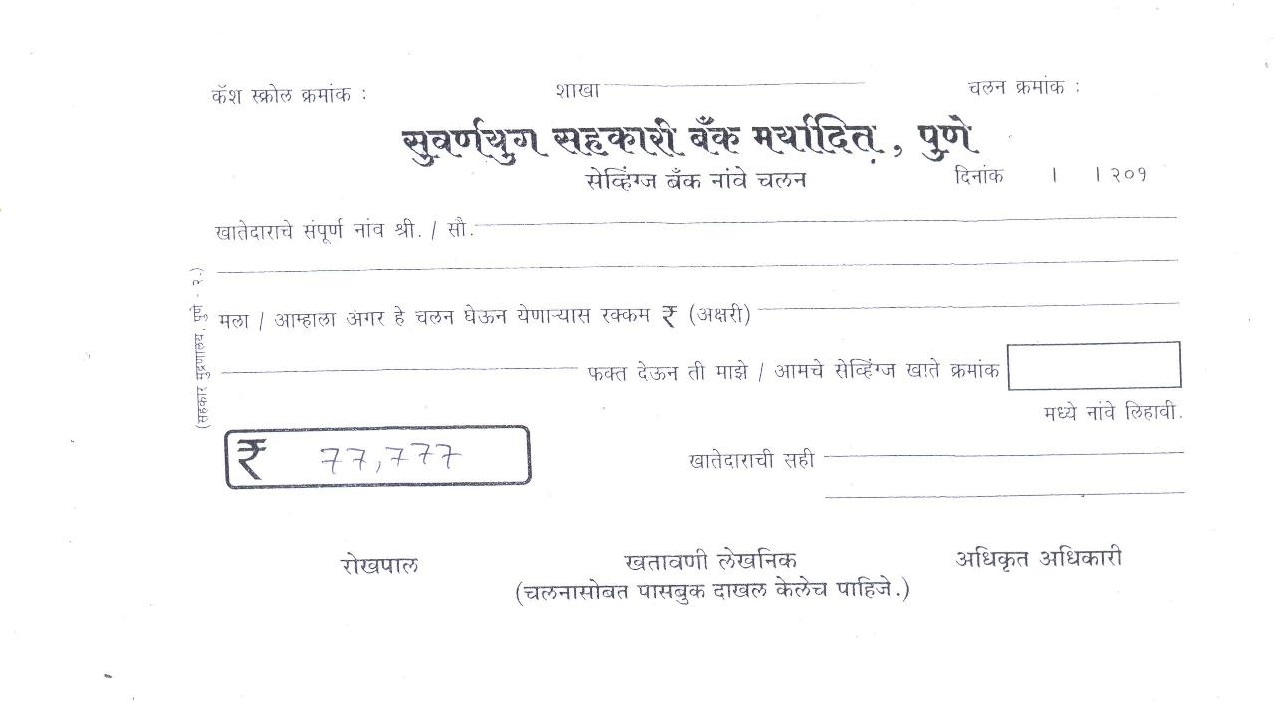 कॅश स्क्रोल क्रमांक : शाखा चलन क्रमांक :
सुवर्णयुग सहकारी बँक मर्यादित, पुणे
सेव्हिंग्ज बँक नांवे चलन दिनांक । । २०१
खातेदाराचे संपूर्ण नांव श्री. / सौ.
मला / आम्हाला अगर हे चलन घेऊन येणाऱ्यास रक्कम ₹ (अक्षरी)
फक्त देऊन ती माझे / आमचे सेव्हिंग्ज खाते क्रमांक
मध्ये नांवे लिहावी.
₹ 77,777 खातेदाराची सही
रोखपाल खतावणी लेखनिक अधिकृत अधिकारी
(चलनासोबत पासबुक दाखल केलेच पाहिजे.)
(सहकार मुद्रणालय, पुणे - २.)